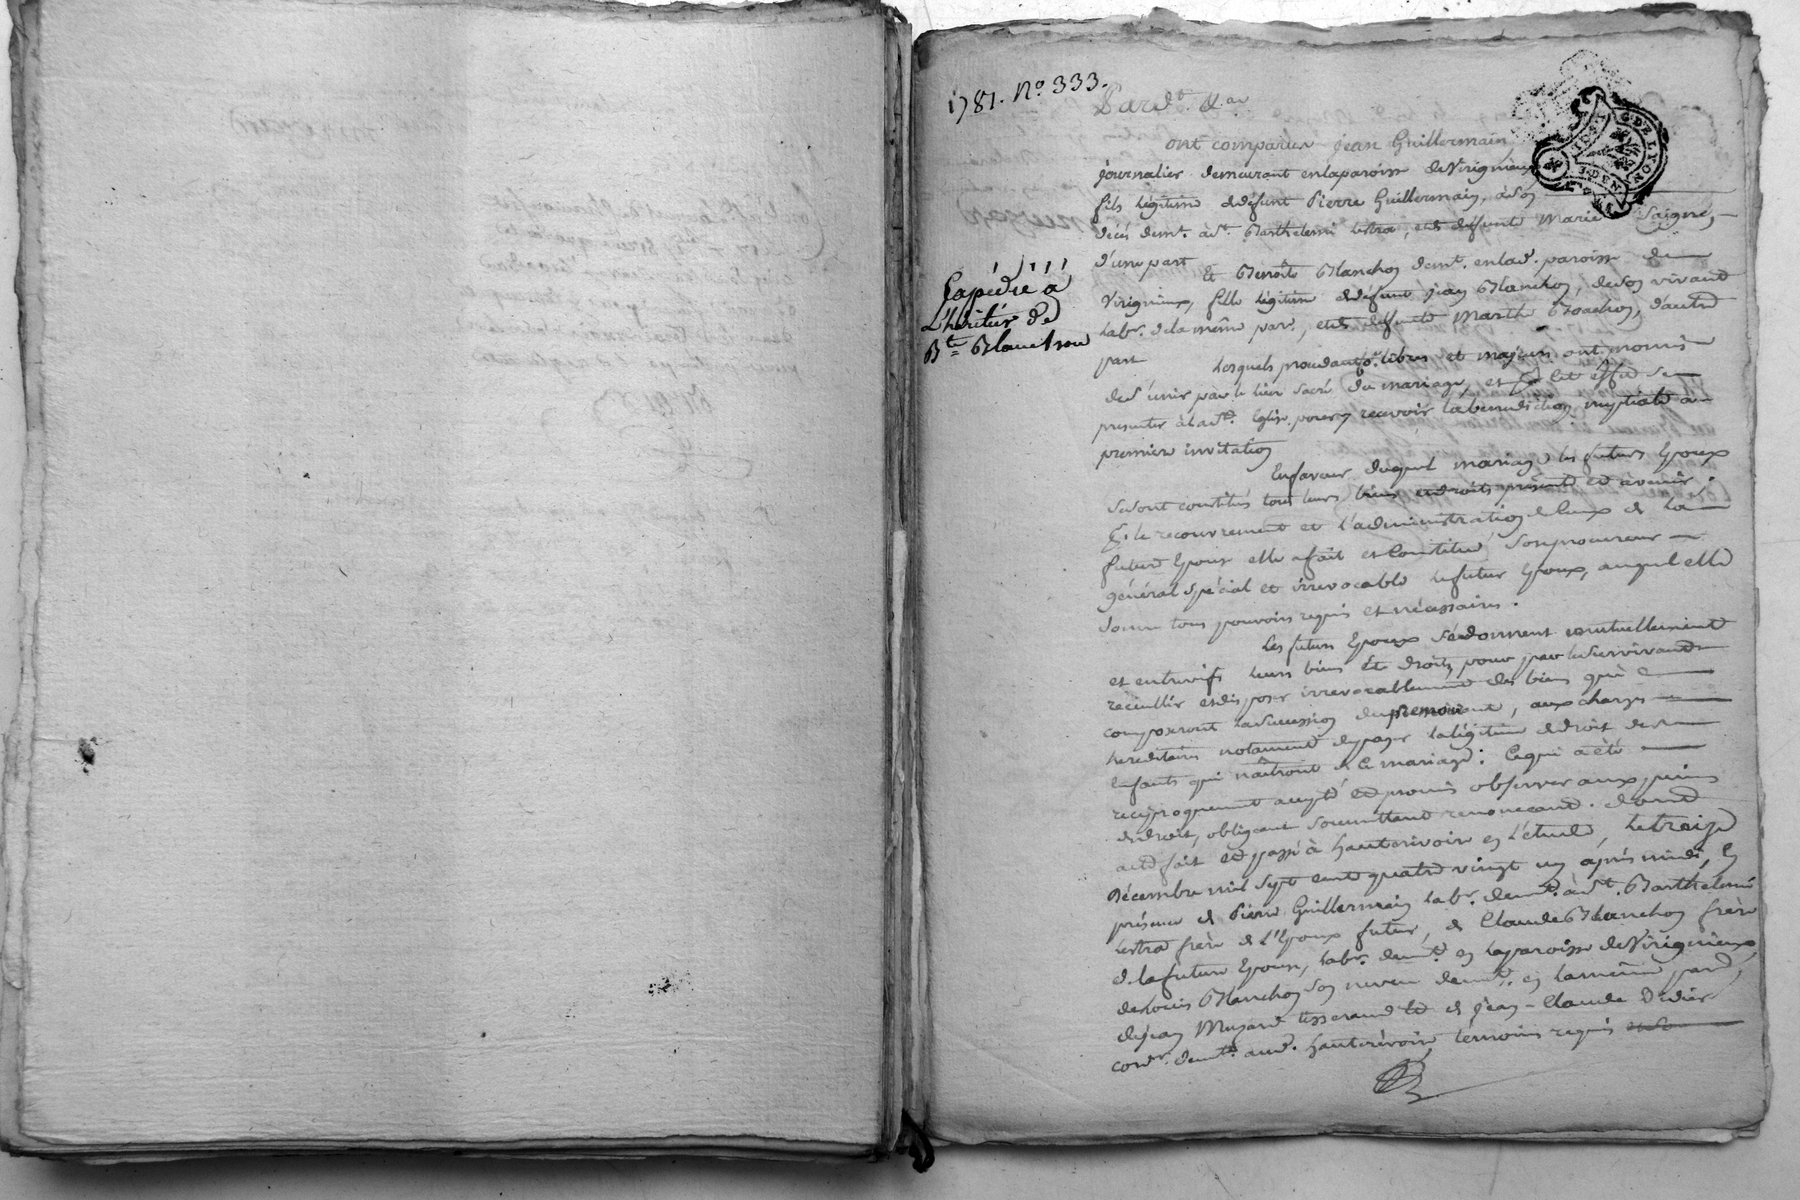 1781. No. 333.
Pardt. &ar
ont comparu jean Guillermain
journalier demeurant en la paroisse de Virignieux
fils légitime de défunt Pierre Guillermain, à son
décés demt. à St. Barthelemi lestra, et de défunte Marie Saigne,
d'une part
Et Benoîte Blanchon demt. en lad. paroisse de
Virignieux, fille légitime de défunt jean Blanchon, de son vivant
labr. de la même par., et de défunte Marthe, d'autre
part
Expédié à
L'héritier de
Bte. Blanchon
Lesquels libres et majeurs ont promis
de s'unir par le lien sacré du mariage, et à cet éffet se
presenter à la Ste. Eglise pour y recevoir la bénédiction nuptiale a
premiere invitation
En faveur duquel mariage les futurs Epoux
se sont constitués tous leurs biens et droits présents et avenir.
P. le recouvrement et l'administration de ceux de la
future Epouse elle a fait et Constitué son procureur
général spécial et irrevocable le futur Epoux, auquel elle
donne tous pouvoirs requis et nécessaires.
Les futurs Epoux se donnent mutuellement
et entrevifs leurs biens et droits, pour par le survivant
recueillir et disposer irrevocablement des biens qui
composeront la succession du premourant, aux charges
hereditaires notament de payer la légitime de droit des
enfants qui naîtront de ce mariage: Ce qui a été
reciproquement accepté et promis observer aux peines
de droit, obligeant soumettant renonceant. dont
acte fait et passé à hauterivoire en l'étude, le treize
Décembre mil sept cent quatre vingt un après midi, en
présence de Pierre Guillermain labr. demt. à St. Barthelemi
lestra frère de l'Epoux futur, de Claude Blanchon frère
de la future Epouse, labr. demt. en la paroisse de Virignieux,
de Louis Blanchon son neveu demt. en la même par.,
de jean Muzard tisserand et de jean-Claude Didier
cordr. demts. aud. hauterivoire, témoins requis